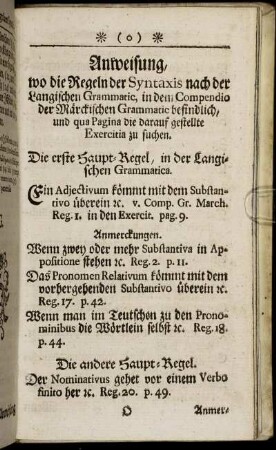 * (o) *
Anweisung,
wo die Regeln der Syntaxis nach der
Langischen Grammatic, in dem Compendio
der Märckischen Grammatic befindlich,
und qua Pagina die darauf gestellte
Exercitia zu suchen.
Die erste Haupt-Regel, in der Langi-
schen Grammatica.
Ein Adjectivum kömmt mit dem Substan-
tivo überein ꝛc. v. Comp. Gr. March.
Reg. 1. in den Exercit. pag. 9.
Anmerckungen.
Wenn zwey oder mehr Substantiva in Ap-
positione stehen ꝛc. Reg. 2. p. 11.
Das Pronomen Relativum kömmt mit dem
vorhergehenden Substantivo überein ꝛc.
Reg. 17. p. 42.
Wenn man im Teutschen zu den Prono-
minibus die Wörtlein selbst ꝛc. Reg. 18.
p. 44.
Die andere Haupt-Regel.
Der Nominativus gehet vor einem Verbo
finito her ꝛc. Reg. 20. p. 49.
Anmer-